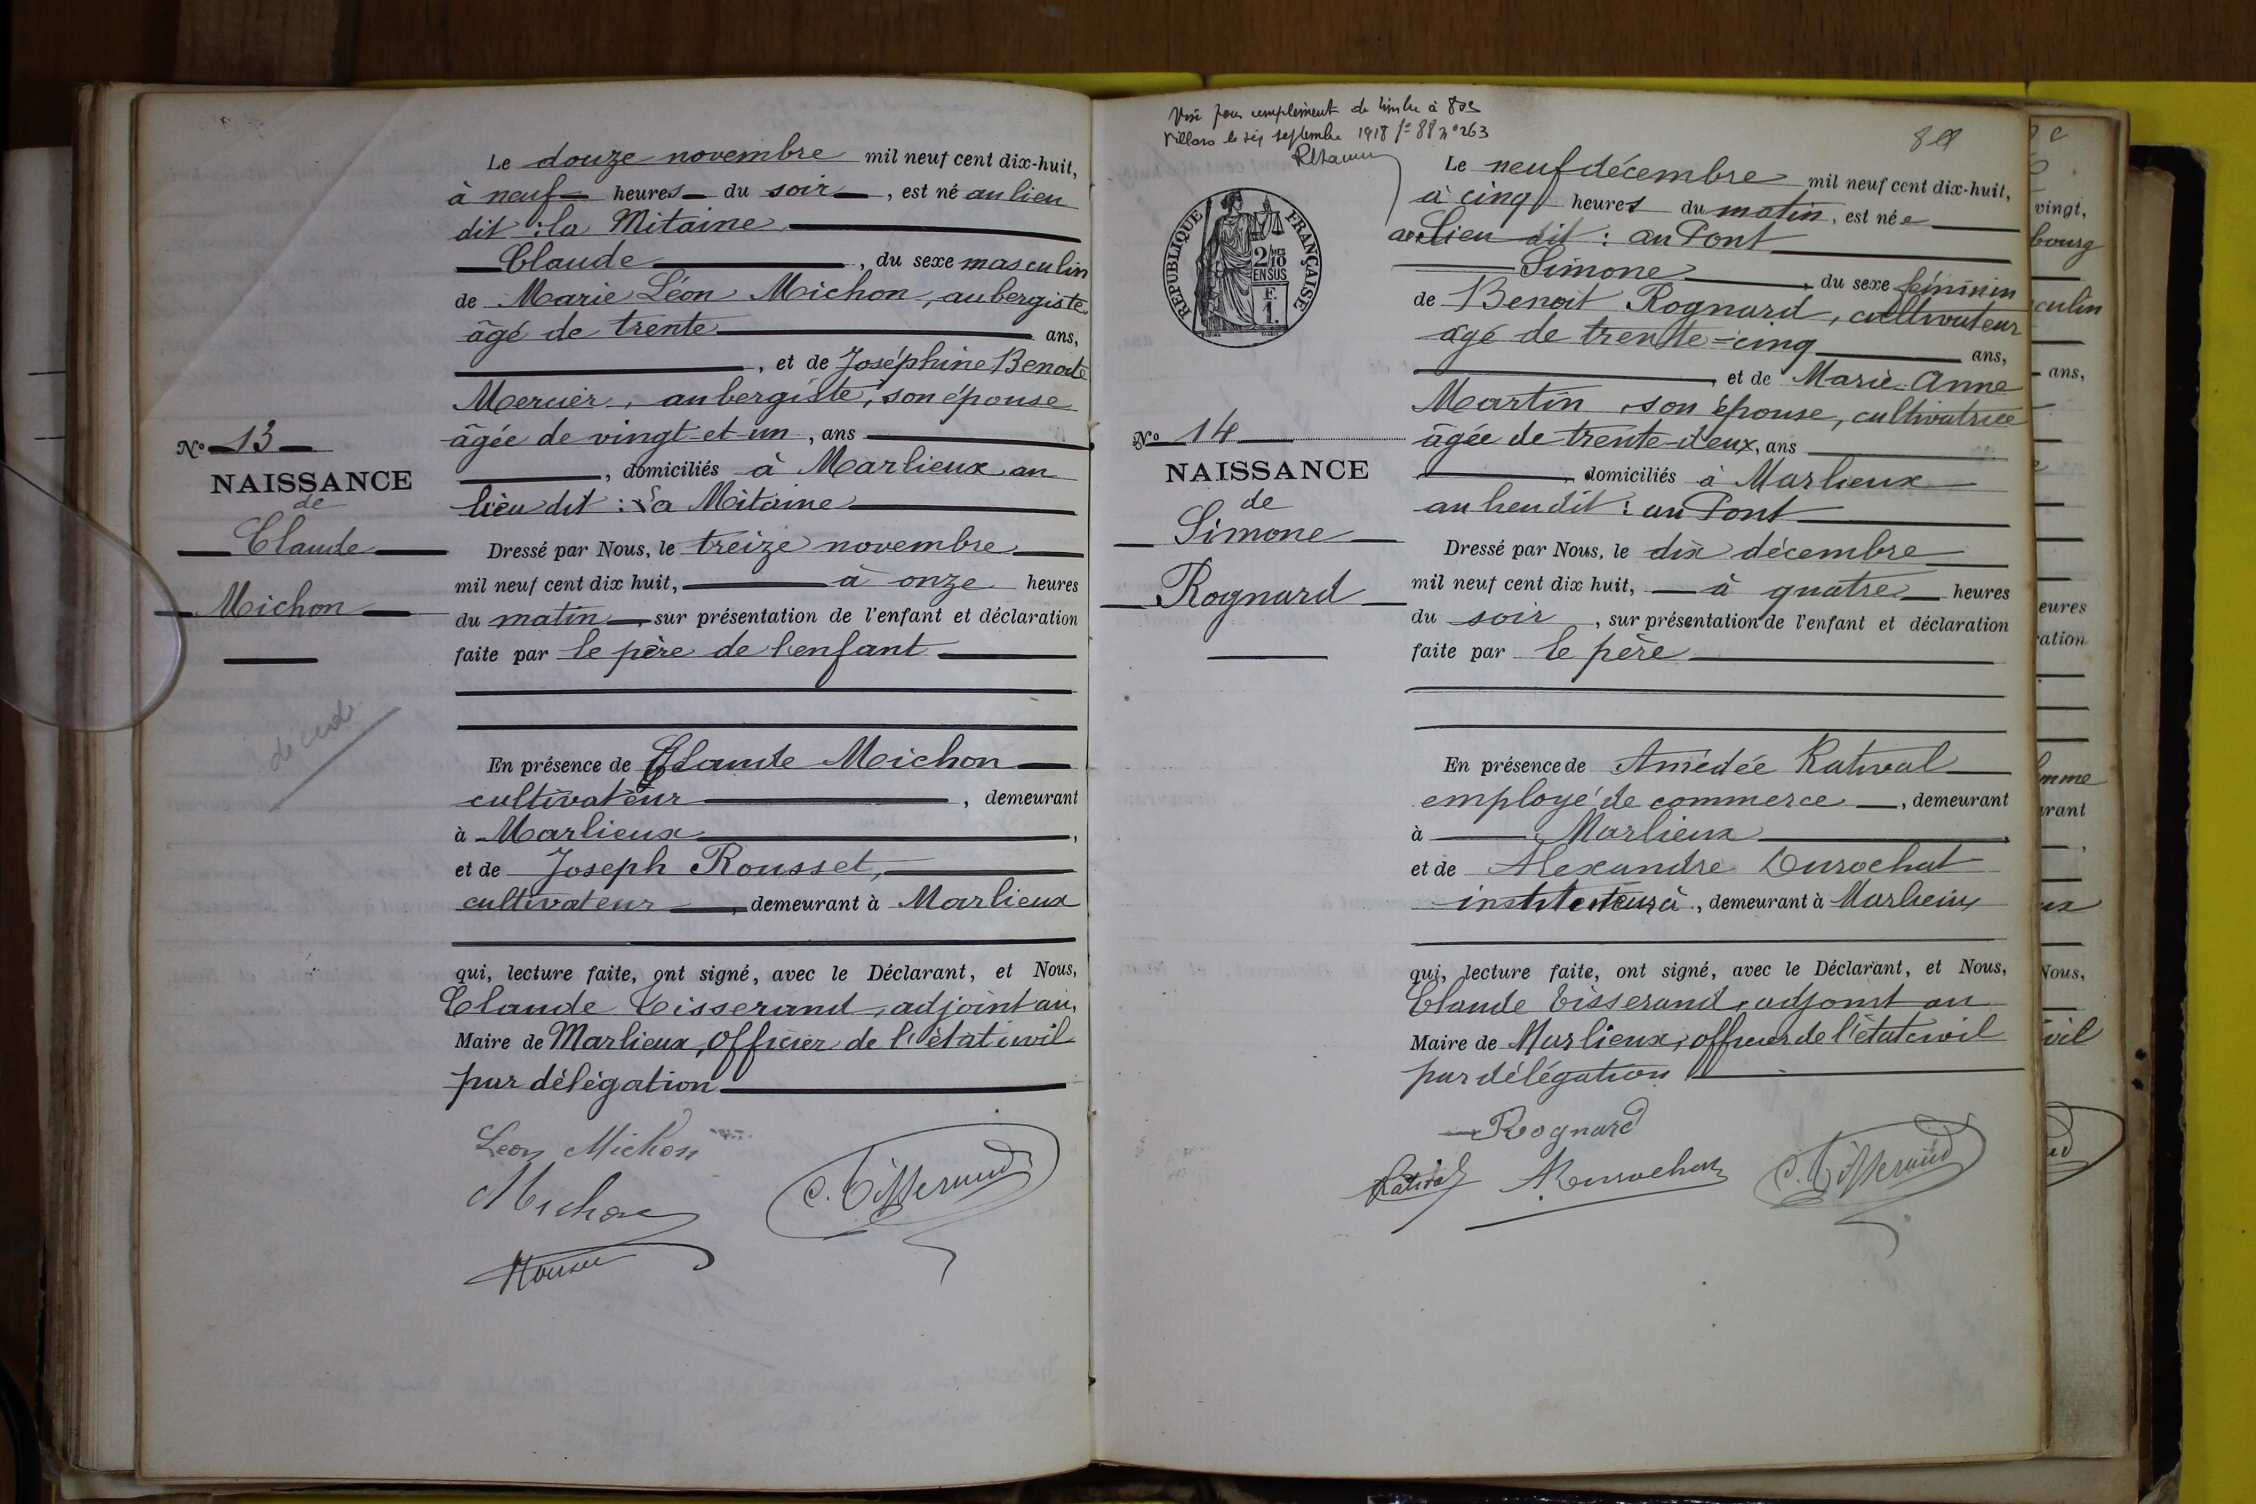 Le douze novembre mil neuf cent dix-huit,
à neuf heures du soir, est né au lieu
dit : la Mitaine
Claude, du sexe masculin
de Marie Léon Michon, aubergiste
âgé de trente ans,
, et de Joséphine Benoite
Mercier, aubergiste, son épouse
âgée de vingt-et-un, ans
, domiciliés à Marlieux au
lieu dit : La Mitaine
No 13
NAISSANCE
de
Claude
Michon
décédé
Dressé par Nous, le treize novembre
mil neuf cent dix huit, à onze heures
du matin, sur présentation de l'enfant et déclaration
faite par le père de l'enfant
En présence de Claude Michon
cultivateur, demeurant
à Marlieux,
et de Joseph Rousset,
cultivateur, demeurant à Marlieux
qui, lecture faite, ont signé, avec le Déclarant, et Nous,
Claude Tisserand, adjoint au,
Maire de Marlieux, Officier de l'état civil
par délégation
Leon Michon
Michon
C. Tisserand
Visé pour complément de timbre à
Villars le six septembre 1918 fo 88 no 263
Le neuf décembre mil neuf cent dix-huit,
à cinq heures du matin, est née
au lieu dit : au Pont
Simone, du sexe féminin
de Benoit Rognard, cultivateur
âgé de trente-cinq ans,
, et de Marie-Anne
Martin, son épouse, cultivatrice
âgée de trente-deux, ans
, domiciliés à Marlieux
au lieu dit : au Pont
REPUBLIQUE FRANÇAISE
2/10
EN SUS
F.
1.
No 14
NAISSANCE
de
Simone
Rognard
Dressé par Nous, le dix décembre
mil neuf cent dix huit, à quatre heures
du soir, sur présentation de l'enfant et déclaration
faite par le père
En présence de Amédée Rativat
employé de commerce, demeurant
à Marlieux,
et de Alexandre Durochat
instituteur à, demeurant à Marlieux
qui, lecture faite, ont signé, avec le Déclarant, et Nous,
Claude Tisserand, adjoint au
Maire de Marlieux, officier de l'état civil
par délégation
Rognard
Rativat ADurochat C. Tisserand
vingt,
bourg
culin
ans,
eures
ration
mme
urant
ux
Nous,
vil